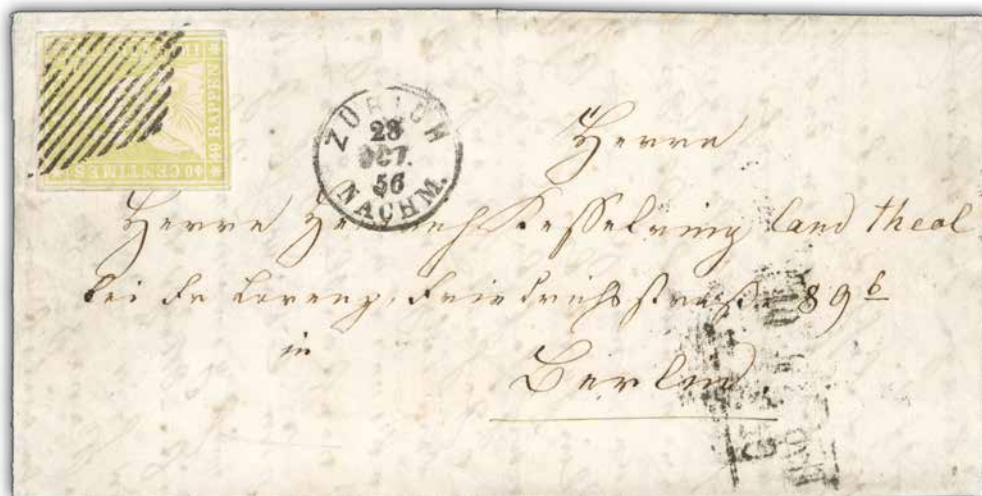 40 RAPPEN
40 CENTIMES
ZÜRICH
28
OCT.
56
NACHM.
Herrn
Herrn Heinrich Kesselring Cand theol
bei Fr Lorenz, Friedrichsstrasse 89 b
in
Berlin.